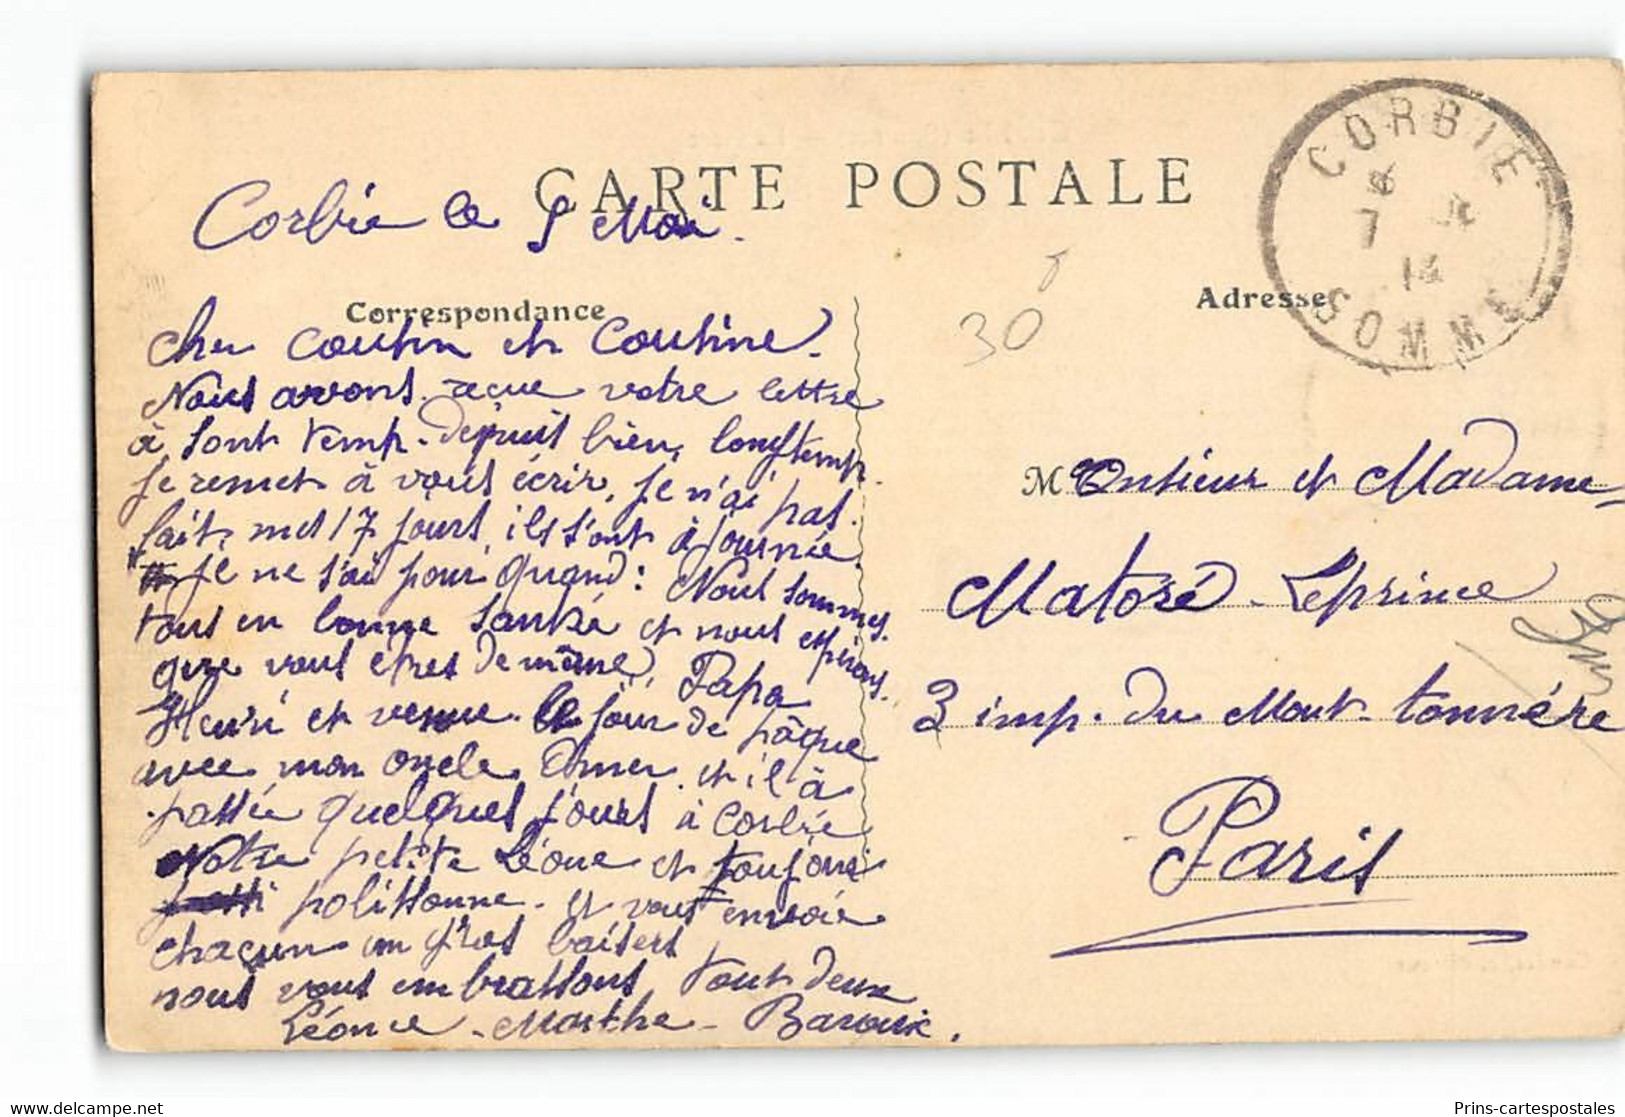 CARTE POSTALE
Corbie le 5 Mai.
CORBIE
7
14
SOMME
Correspondance
Adresse
30
cher Cousin et Cousine.
Nous avons reçue votre lettre
à sont temp. depuis bien longtemp.
je remet à vous écrir, je n'ai pas
fait mes 17 jours, ils s'ont à journée
je ne s'ai pour quand: Nous sommes
tous en bonne santée et nous espérons
que vous êtes de même, Papa
Henri et venue le jour de pâque
avec mon oncle Omer et il à
passée quelques jours à Corbie
Notre petite Léone et toujours
polissonne. et vous envoie
chaqun un gros baisers
nous vous embrassons tout deux
Léonce - Marthe - Baroux.
Monsieur et Madame
Matoré - Leprince
3 imp. du Mont-tonnére
Paris
Prins-cartespostales.com